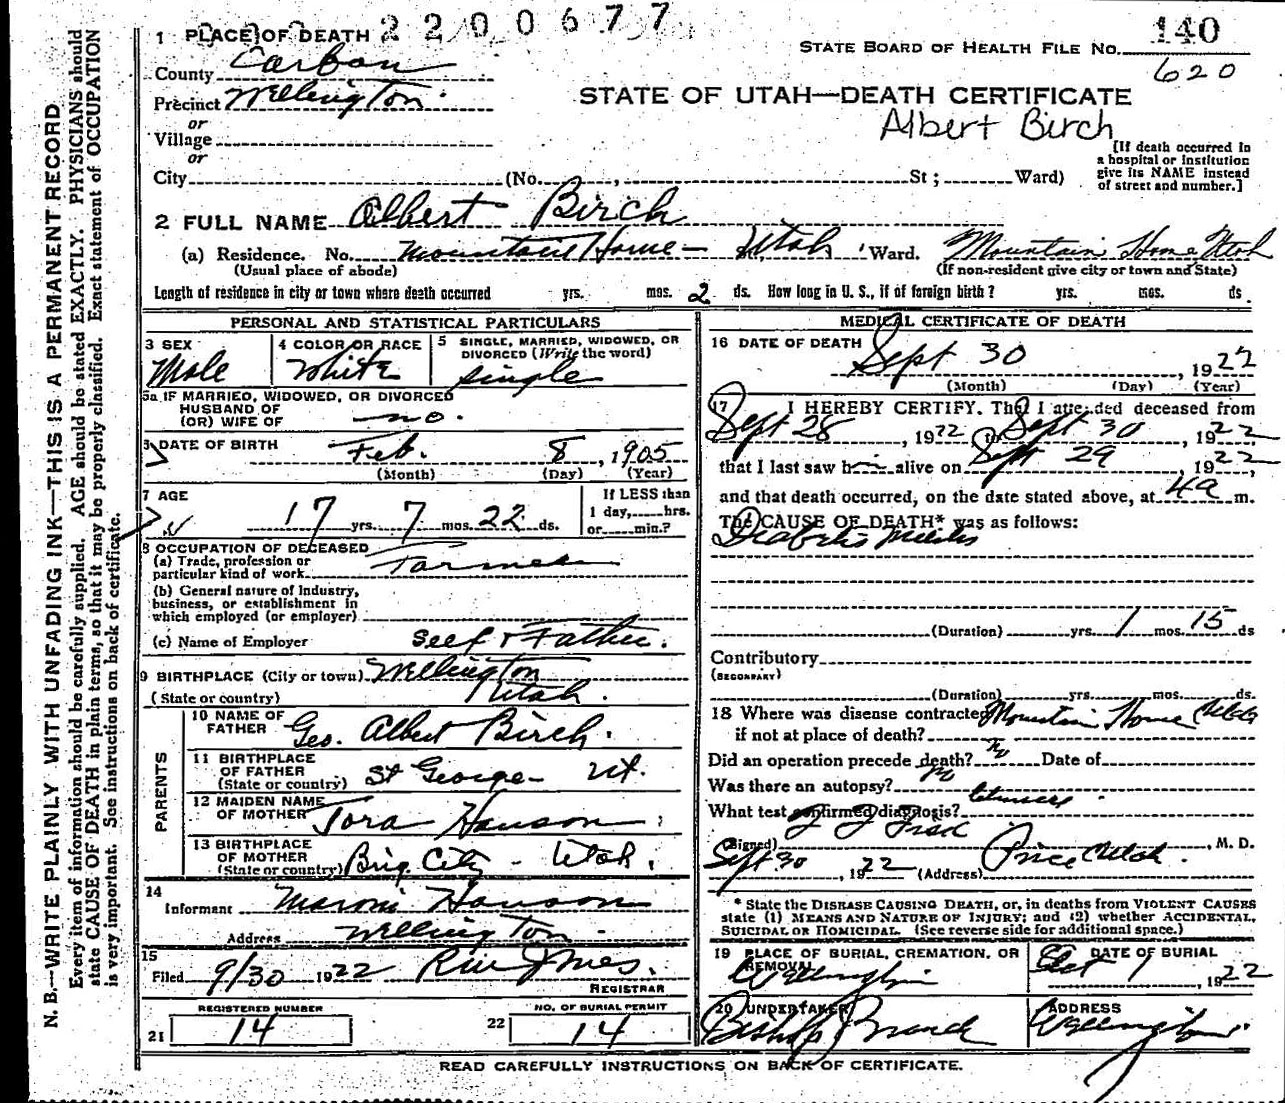 2200677
140
1 PLACE OF DEATH
STATE BOARD OF HEALTH FILE No.
620
County Carbon
Precinct Wellington
STATE OF UTAH—DEATH CERTIFICATE
Albert Birch
or
Village
or
[If death occurred in
a hospital or institution
give its NAME instead
of street and number.]
City (No. , St ; Ward)
2 FULL NAME Albert Birch
(a) Residence. No. Mountain Home - Utah Ward. Mountain Home Utah
(Usual place of abode) (If non-resident give city or town and State)
Length of residence in city or town where death occurred yrs. mos. 2 ds. How long in U. S., if of foreign birth ? yrs. mos. ds
PERSONAL AND STATISTICAL PARTICULARS
3 SEX
Male
4 COLOR OR RACE
White
5 SINGLE, MARRIED, WIDOWED, OR
DIVORCED (Write the word)
Single
5a IF MARRIED, WIDOWED, OR DIVORCED
HUSBAND OF
(OR) WIFE OF no.
DATE OF BIRTH
Feb. 8, 1905
(Month) (Day) (Year)
7 AGE
17 yrs. 7 mos. 22 ds.
If LESS than
1 day, hrs.
or min.?
8 OCCUPATION OF DECEASED
(a) Trade, profession or
particular kind of work Farmer
(b) General nature of Industry,
business, or establishment in
which employed (or employer)
(c) Name of Employer Self + Father.
9 BIRTHPLACE (City or town) Wellington
(State or country) Utah.
PARENTS
10 NAME OF
FATHER Geo. Albert Birch.
11 BIRTHPLACE
OF FATHER
(State or country) St George - Ut.
12 MAIDEN NAME
OF MOTHER Tora Hanson
13 BIRTHPLACE
OF MOTHER
(State or country) Brig. City - Utah.
14
Informant Maroni Hanson
Address Wellington
15
Filed 9/30 1922
REGISTRAR
REGISTERED NUMBER
21 14
NO. OF BURIAL PERMIT
22 14
MEDICAL CERTIFICATE OF DEATH
16 DATE OF DEATH
Sept 30, 1922
(Month) (Day) (Year)
17 I HEREBY CERTIFY. That I attended deceased from
Sept 28, 1922 to Sept 30, 1922
that I last saw him alive on Sept 29, 1922
and that death occurred, on the date stated above, at 4a m.
The CAUSE OF DEATH* was as follows:
Diabetis
(Duration) yrs. 1 mos. 15 ds
Contributory
(SECONDARY)
(Duration) yrs. mos. ds.
18 Where was disease contracted Mountain Home Utah
if not at place of death?
Did an operation precede death? no Date of
Was there an autopsy? no
What test confirmed diagnosis?
(Signed) , M. D.
Sept 30, 1922 (Address) Price Utah.
* State the DISEASE CAUSING DEATH, or, in deaths from VIOLENT CAUSES
state (1) MEANS AND NATURE OF INJURY; and (2) whether ACCIDENTAL,
SUICIDAL OR HOMICIDAL. (See reverse side for additional space.)
19 PLACE OF BURIAL, CREMATION, OR
REMOVAL
Wellington
DATE OF BURIAL
Oct 1, 1922
20 UNDERTAKER
Bishop Branch
ADDRESS
Wellington
READ CAREFULLY INSTRUCTIONS ON BACK OF CERTIFICATE.
N. B.—WRITE PLAINLY WITH UNFADING INK—THIS IS A PERMANENT RECORD
Every item of information should be carefully supplied. AGE should be stated EXACTLY. PHYSICIANS should
state CAUSE OF DEATH in plain terms, so that it may be properly classified. Exact statement of OCCUPATION
is very important. See instructions on back of certificate.